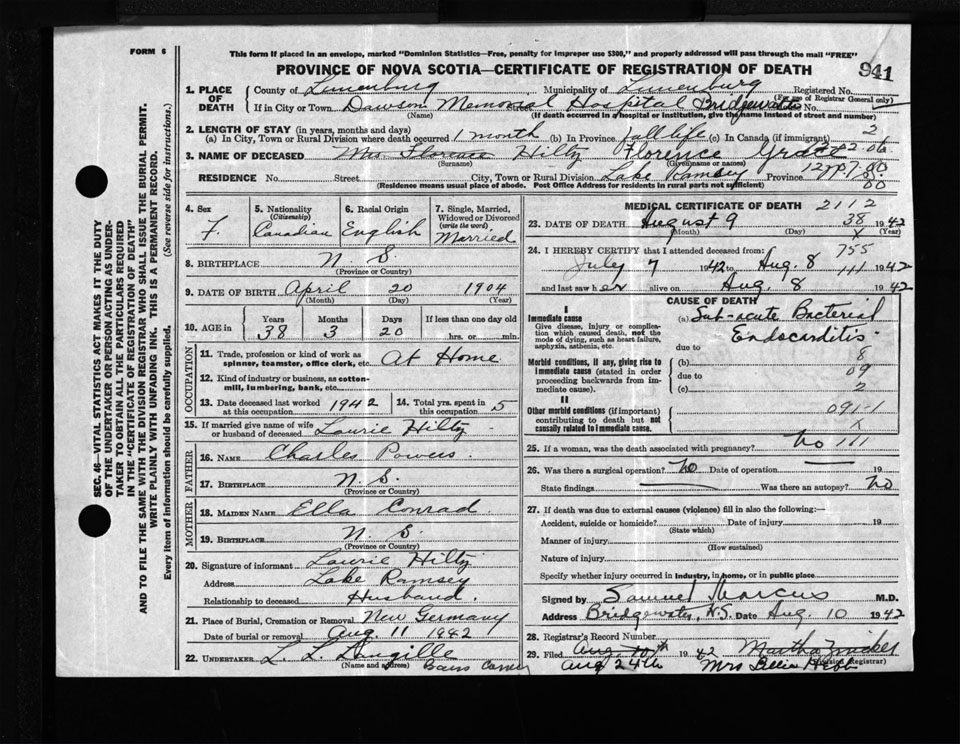 FORM 6
This form if placed in an envelope, marked "Dominion Statistics—Free, penalty for improper use $300," and properly addressed will pass through the mail "FREE"
941
PROVINCE OF NOVA SCOTIA—CERTIFICATE OF REGISTRATION OF DEATH
1. PLACE OF DEATH
County of Lunenburg Municipality of Lunenburg Registered No.
(For use of Registrar General only)
If in City or Town Dawson Memorial Hospital Street Bridgewater No.
(Name) (If death occurred in a hospital or institution, give the name instead of street and number)
2. LENGTH OF STAY (in years, months and days)
(a) In City, Town or Rural Division where death occurred 1 month (b) In Province all life (c) In Canada (if immigrant)
3. NAME OF DECEASED Mrs. Florence Hiltz Florence
(Surname) (Given name or names)
RESIDENCE No. Street City, Town or Rural Division Lake Ramsey Province
(Residence means usual place of abode. Post Office Address for residents in rural parts not sufficient)
4. Sex F.
5. Nationality (Citizenship) Canadian
6. Racial Origin English
7. Single, Married, Widowed or Divorced (write the word) Married
8. BIRTHPLACE N. S.
(Province or Country)
9. DATE OF BIRTH April 20 1904
(Month) (Day) (Year)
10. AGE in Years Months Days If less than one day old
38 3 20 hrs. or min.
OCCUPATION
11. Trade, profession or kind of work as spinner, teamster, office clerk, etc. At Home
12. Kind of industry or business, as cotton-mill, lumbering, bank, etc.
13. Date deceased last worked at this occupation 1942
14. Total yrs. spent in this occupation 5
15. If married give name of wife or husband of deceased Laurie Hiltz
FATHER
16. NAME Charles Powers
17. BIRTHPLACE N. S.
(Province or Country)
MOTHER
18. MAIDEN NAME Ella Conrad
19. BIRTHPLACE N. S.
(Province or Country)
20. Signature of informant Laurie Hiltz
Address Lake Ramsey
Relationship to deceased Husband.
21. Place of Burial, Cremation or Removal New Germany
Date of burial or removal Aug. 11 1942
22. UNDERTAKER L. L.
(Name and address)
MEDICAL CERTIFICATE OF DEATH 2112
23. DATE OF DEATH August 9 38 1942
(Month) (Day) X (Year)
24. I HEREBY CERTIFY that I attended deceased from: 755
July 7 1942 to Aug. 8 111 1942
and last saw her alive on Aug. 8 1942
CAUSE OF DEATH
I
Immediate cause
Give disease, injury or complication which caused death, not the mode of dying, such as heart failure, asphyxia, asthenia, etc.
(a) Sub-acute Bacterial
Endocarditis
due to 8
Morbid conditions, if any, giving rise to immediate cause (stated in order proceeding backwards from immediate cause).
(b) 09
due to
(c) 2
II
Other morbid conditions (if important) contributing to death but not causally related to immediate cause.
091-1
X
25. If a woman, was the death associated with pregnancy? No 111
26. Was there a surgical operation? No Date of operation 19
State findings Was there an autopsy? No
27. If death was due to external causes (violence) fill in also the following:—
Accident, suicide or homicide? Date of injury 19
(State which)
Manner of injury
(How sustained)
Nature of injury
Specify whether injury occurred in industry, in home, or in public place
Signed by Samuel Marcus M.D.
Address Bridgewater, N.S. Date Aug. 10 1942
28. Registrar's Record Number
29. Filed Aug. 10th 1942 Martha
Aug 24th Mrs Hebb
(Division Registrar)
SEC. 46—VITAL STATISTICS ACT MAKES IT THE DUTY
OF THE UNDERTAKER OR PERSON ACTING AS UNDER-
TAKER TO OBTAIN ALL THE PARTICULARS REQUIRED
IN THE "CERTIFICATE OF REGISTRATION OF DEATH"
AND TO FILE THE SAME WITH THE DIVISION REGISTRAR WHO SHALL ISSUE THE BURIAL PERMIT.
WRITE PLAINLY WITH UNFADING INK. THIS IS A PERMANENT RECORD.
Every item of information should be carefully supplied. (See reverse side for instructions.)